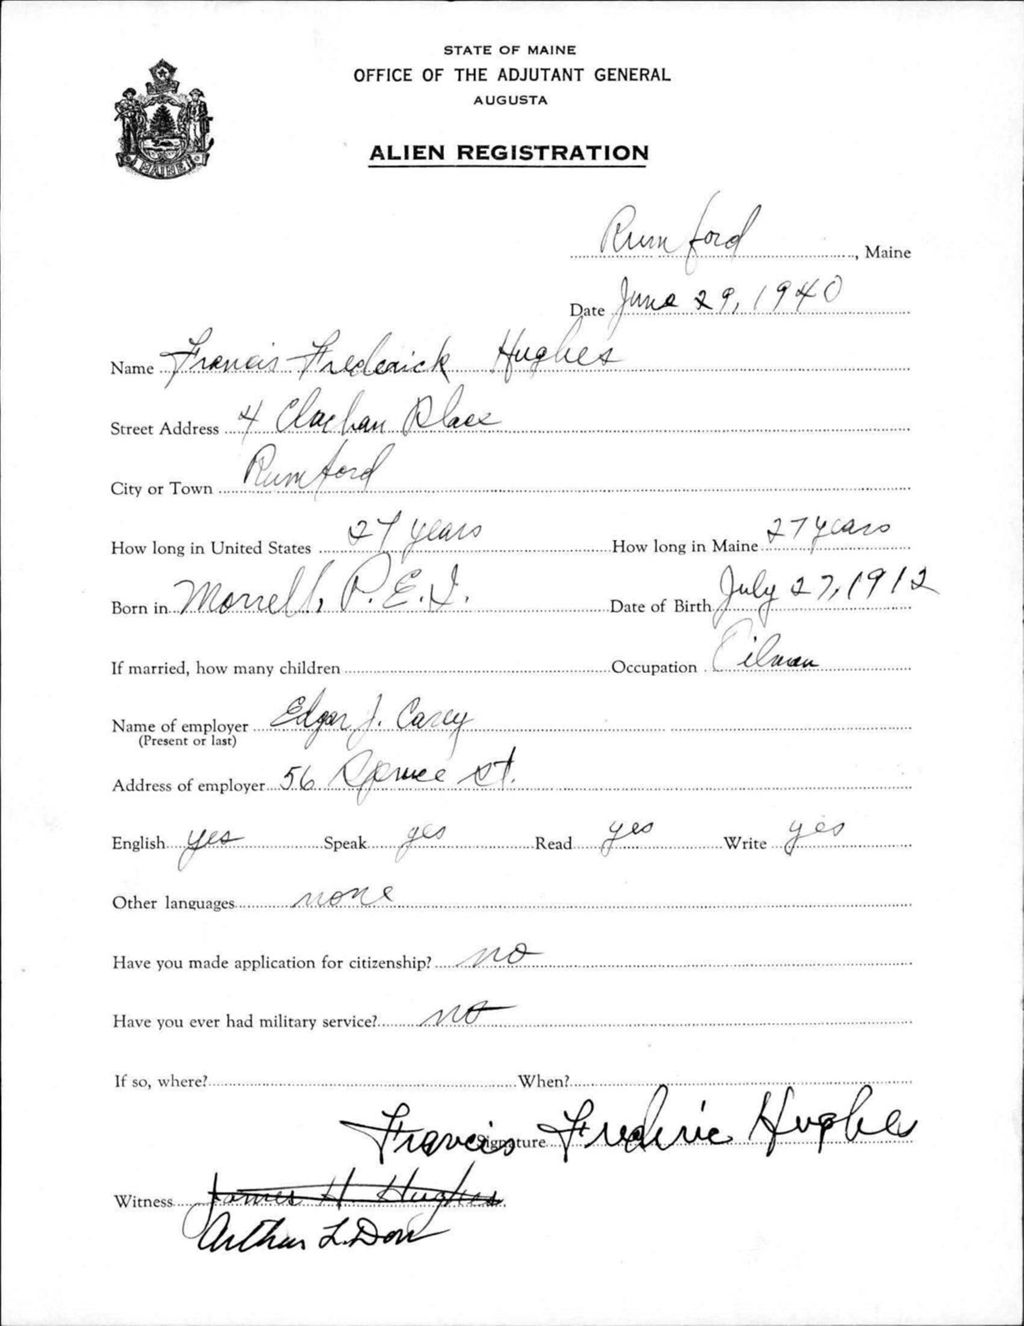 STATE OF MAINE
OFFICE OF THE ADJUTANT GENERAL
AUGUSTA
MAINE
ALIEN REGISTRATION
Rumford, Maine
Date June 29, 1940
Name Francis Frederick Hughes
Street Address 4 Clachan Place
City or Town Rumford
How long in United States 27 years How long in Maine 27 years
Born in Morrell, P.E.I. Date of Birth July 27, 1912
If married, how many children Occupation Oilman
Name of employer Edgar J. Carey
(Present or last)
Address of employer 56 Spruce St.
English yes Speak yes Read yes Write yes
Other languages none
Have you made application for citizenship? no
Have you ever had military service? no
If so, where? When?
Signature Francis Frederic Hughes
Witness James H. Hughes
Arthur L. Dow